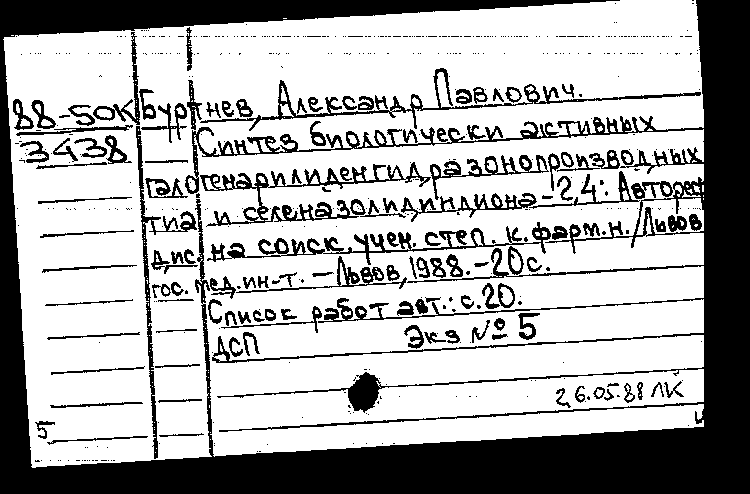 88-50К Буртнев, Александр Павлович.
3438 Синтез биологически активных
галогенарилиденгидразонопроизводных
тиа и селеназолидиндиона-2,4: Автореф
дис. на соиск. учен. степ. к.фарм.н./Львов
гос. мед. ин-т. – Львов, 1988. – 20 с.
Список работ авт.: с.20.
ДСП Экз № 5
26.05.88 ЛК
5